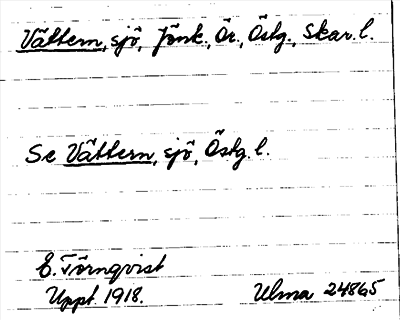 Vättern, sjö, Jönk., Ör., Östg., Skar. l.
Se Vättern, sjö, Östg. l.
E. Törnqvist
Uppt 1918. Ulma 24865